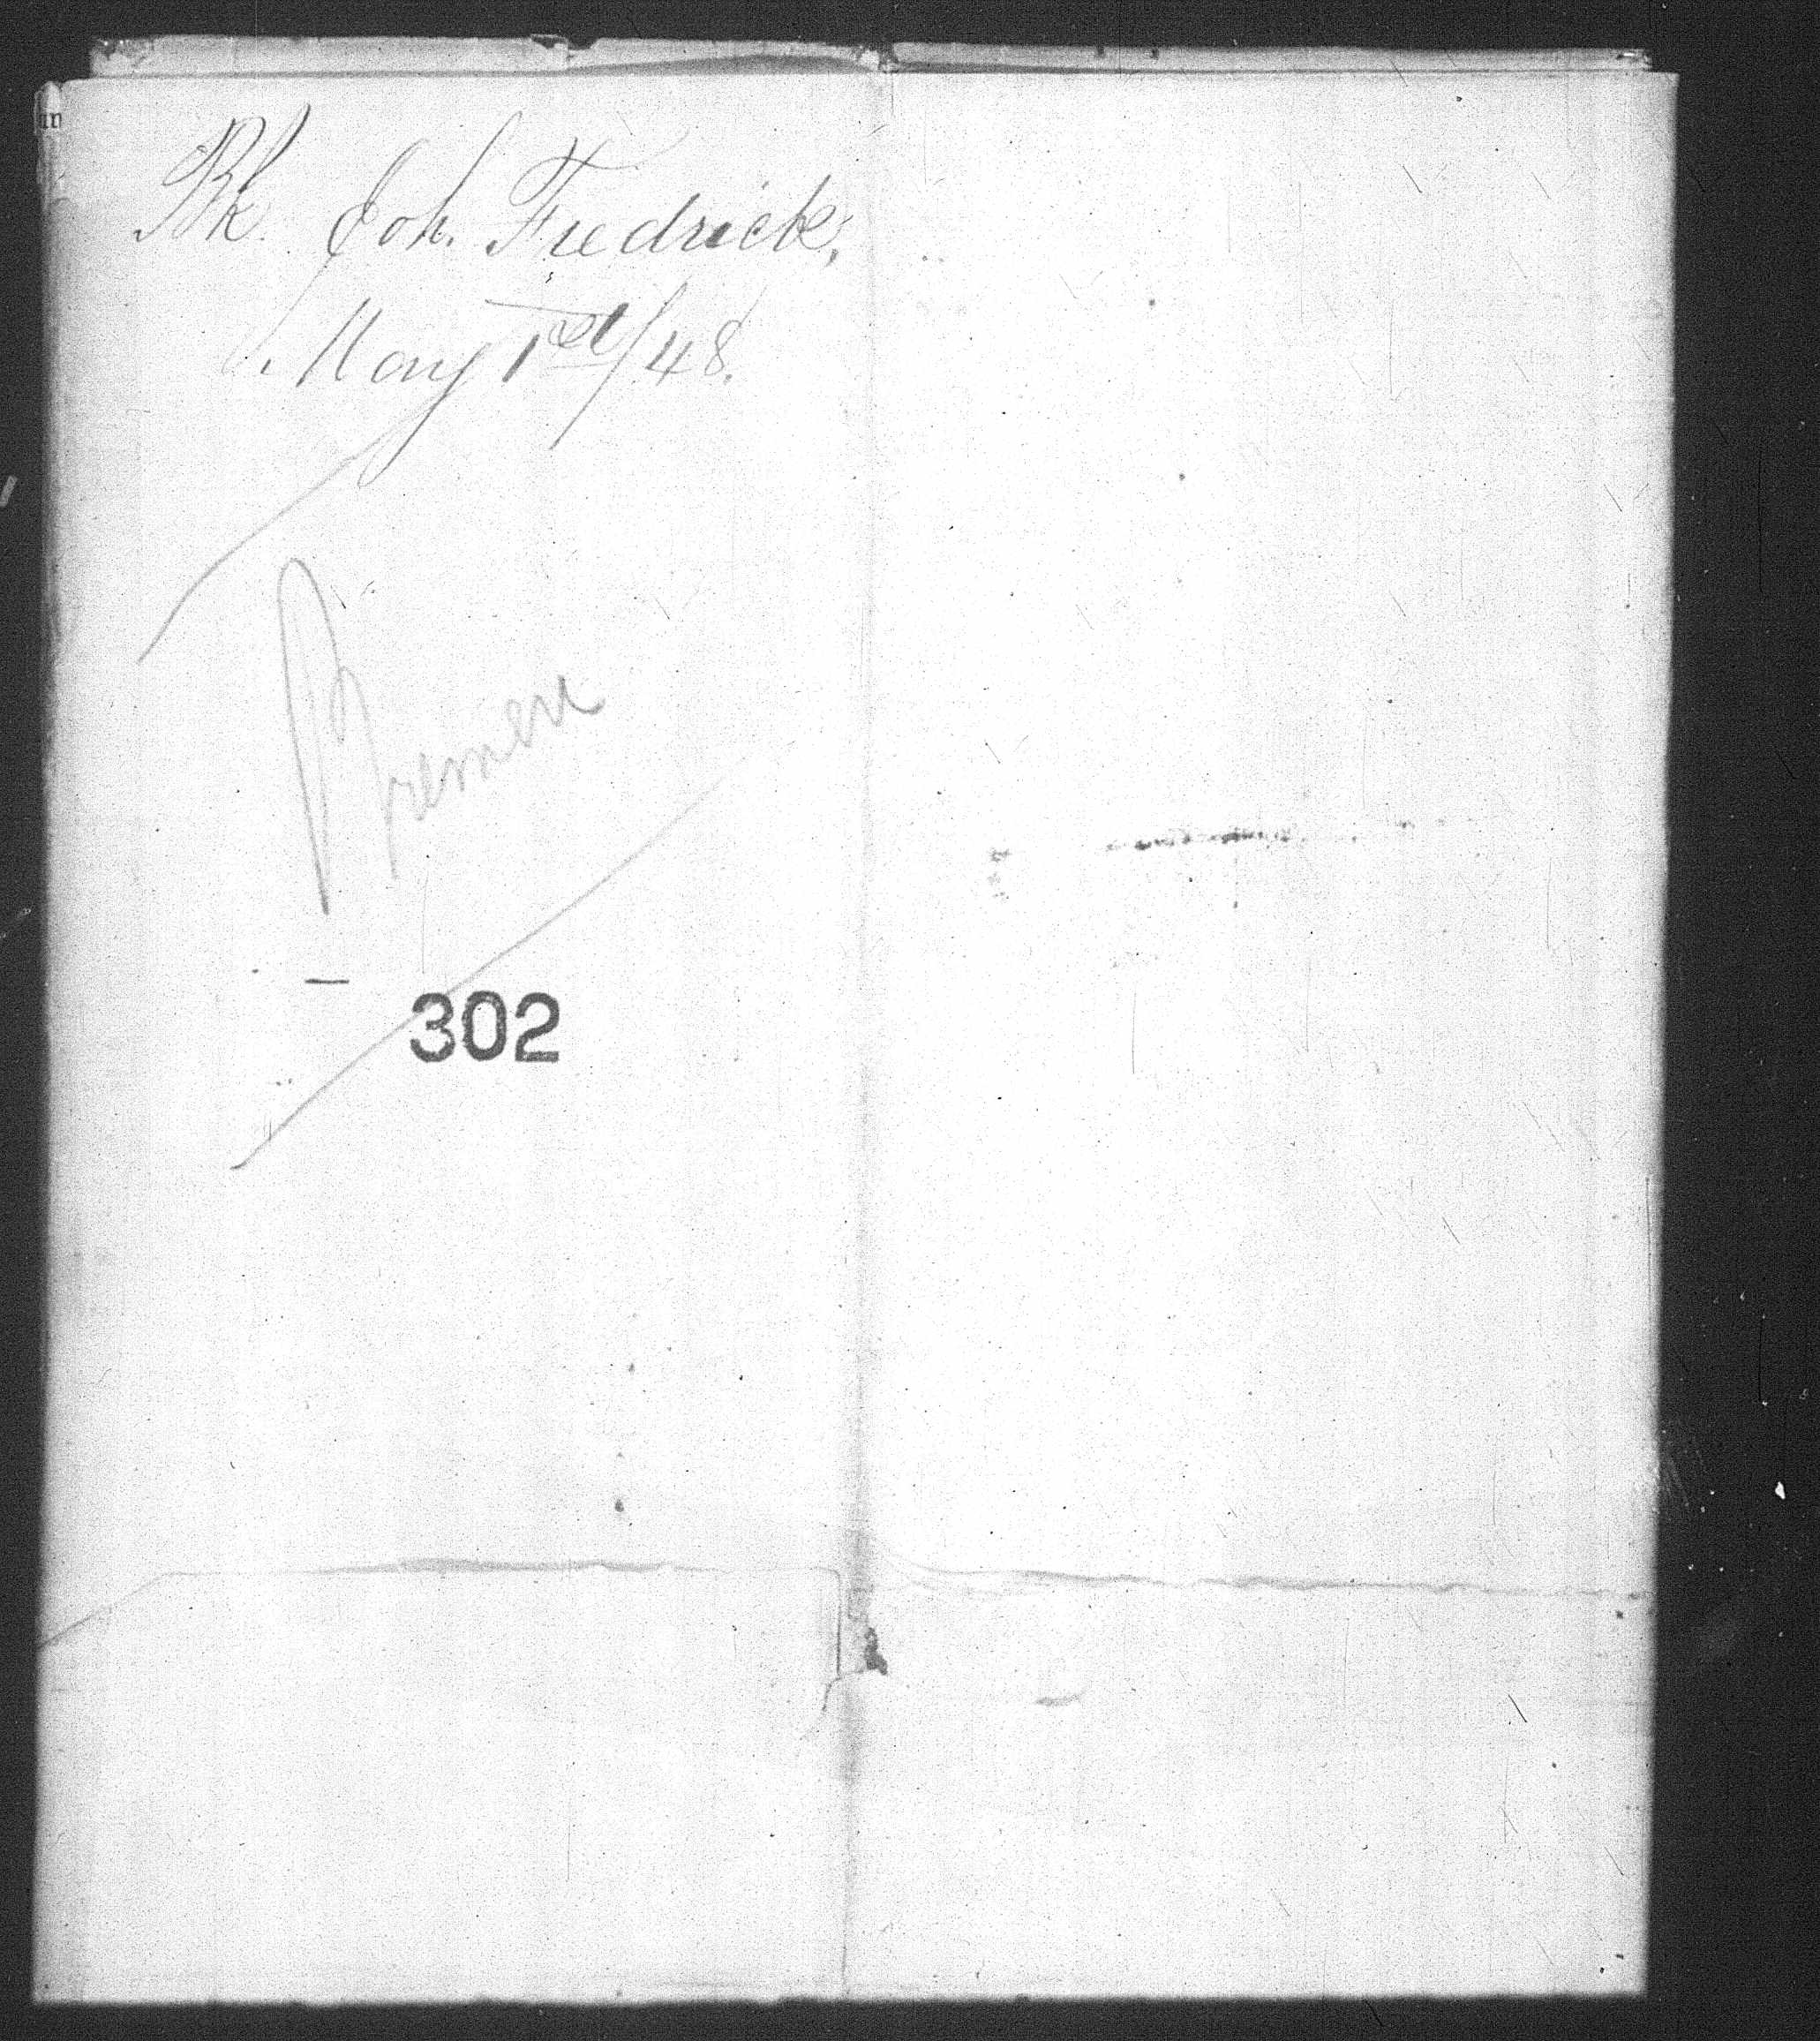 Bk. Joh. Fredrick,
May 1st/48.
Bremen
302